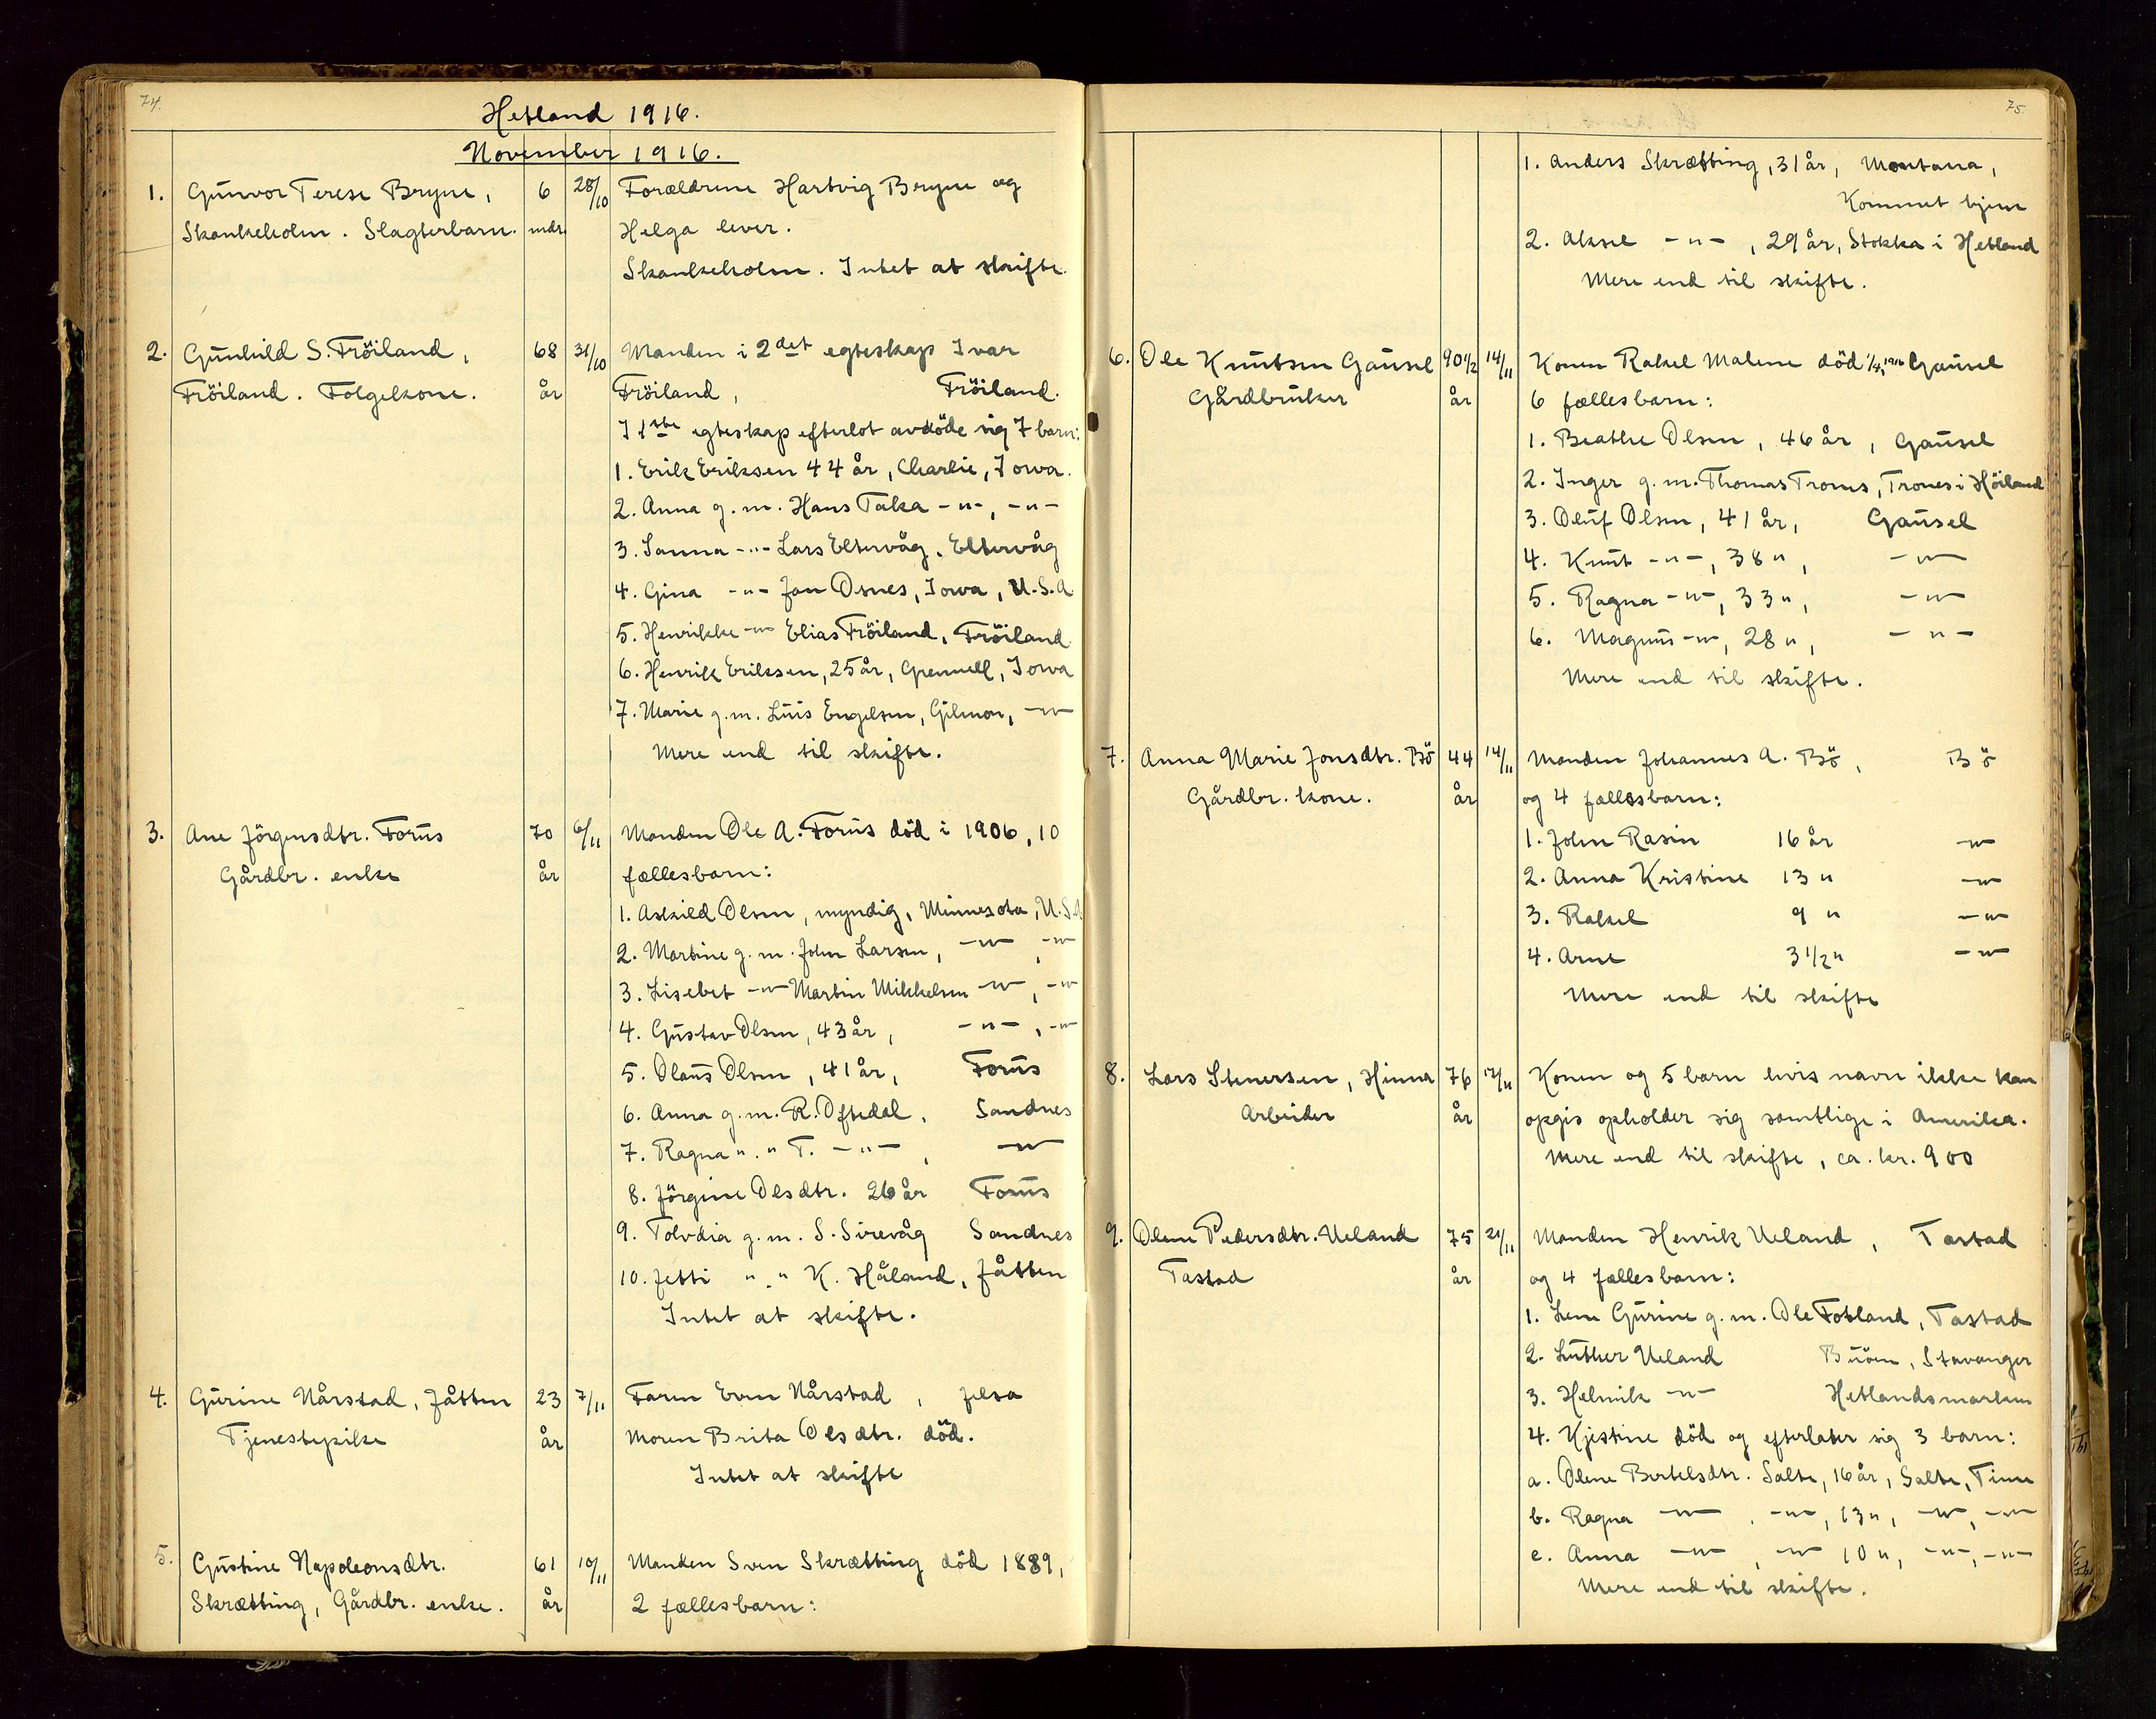 74.
Hetland 1916.
November 1916.
1. Gunvor Terese Bryne, 6 28/10 Forældrene Hartvig Bryne og
Skankeholm. Slagterbarn. mdr. Helga lever.
Skankeholm. Intet at skifte.
2. Gunhild S. Fröiland, 68 31/10 Manden i 2det egteskap Ivar
Fröiland. Folgekone. år Fröiland, Fröiland.
I 1ste egteskap efterlot avdöde sig 7 barn:
1. Erik Eriksen 44 år, Charlie, Iowa.
2. Anna g. m. Hans Taka -"-, -"-
3. Sanna -"- Lars Eltervåg, Eltervåg
4. Gina -"- Jon Osnes, Iowa, U.S.A
5. Henrikke -"- Elias Fröiland, Fröiland
6. Henrik Eriksen, 25 år, Iowa
7. Marie g.m. Luis Engelsen, Gilmor, -"-
Mere end til skifte.
3. Ane Jörgensdtr. Forus 70 6/11 Manden Ole A. Forus död i 1906, 10
Gårdbr. enke år fællesbarn:
1. Askild Olsen, myndig, Minnesota, U.S.A
2. Martine g. m. John Larsen, -"-, -"-
3. Lisebet -"- Martin Mikkelsen -"-, -"-
4. Gustav Olsen, 43 år, -"-, -"-
5. Olaus Olsen, 41 år, Forus
6. Anna g. m. R. Oftedal, Sandnes
7. Ragna " . " T. -"-, -"-
8. Jörgine Olsdtr. 26 år Forus
9. Tolvdia g. m. S. Sirevåg Sandnes
10. Jetti " . " K. Håland, Jåtten
Intet at skifte.
4. Gurine Nårstad, Jåtten 23 7/11 Faren Even Nårstad, Jelsa
Tjenestepike år Moren Brita Olsdtr. död.
Intet at skifte
5. Gustine Napoleonsdtr. 61 10/11 Manden Sven Skrætting död 1889,
Skrætting, Gårdbr. enke. år 2 fællesbarn:
75.
1. Anders Skrætting, 31 år, Montana,
Kommet hjem
2. Aksel -"-, 29 år, Stokka i Hetland
Mere end til skifte.
6. Ole Knutsen Gausel 90 1/2 14/11 Konen Rakel Malene död 1/4, 1916 Gausel
Gårdbruker år 6 fællesbarn:
1. Beathe Olsen, 46 år, Gausel
2. Inger g. m. Thomas Trones, Trones i Höiland
3. Oluf Olsen, 41 år, Gausel
4. Knut -"-, 38 ", -"-
5. Ragna -"-, 33 ", -"-
6. Magnus -"-, 28 ", -"-
Mere end til skifte.
7. Anna Marie Jonsdtr. Bö 44 14/11 Manden Johannes A. Bö, Bö
Gårdbr. kone. år og 4 fællesbarn:
1. John Rasin 16 år -"-
2. Anna Kristine 13 " -"-
3. Rakel 9 " -"-
4. Arne 3 1/2 " -"-
Mere end til skifte
8. Lars Stenersen, Hinna 76 17/11 Konen og 5 barn hvis navn ikke kan
Arbeider år opgis opholder sig samtlige i Amerika.
Mere end til skifte, ca. kr. 900
9. Olene Pedersdtr. Ueland 75 21/11 Manden Henrik Ueland, Tastad
Tastad år og 4 fællesbarn:
1. Lene Gurine g. m. Ole Fotland, Tastad
2. Luther Ueland Buöen, Stavanger
3. Helmik -"- Hetlandsmarken
4. Kjistine död og efterlater sig 3 barn:
a. Olene Bertelsdtr. Salte, 16 år, Salte, Time
b. Ragna -"-, -"-, 13 ", -"-, -"-
c. Anna -"-, -"- 10 ", -"-, -"-
Mere end til skifte.